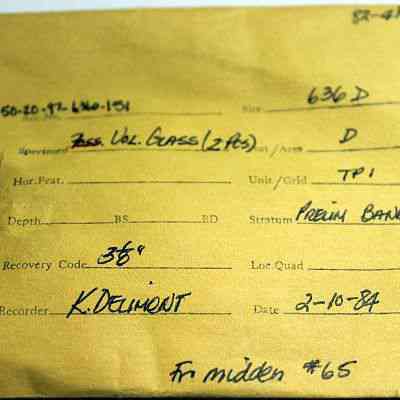 82-41
50-20-92-636-151 Site 636 D
Specimen Vol. Glass (2 Pcs) Unit/Area D
Hor.Feat. Unit/Grid TP1
Depth BS BD Stratum Prelim Bank
Recovery Code 3/8" Loc.Quad
Recorder K. DELIMONT Date 2-10-84
Fr midden #65